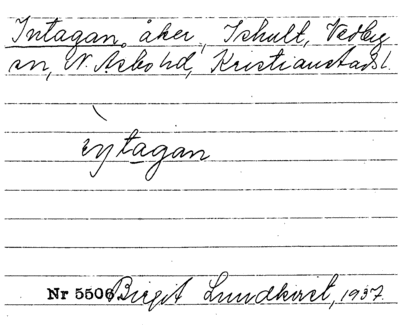 Intagan, åker, Ishult, Vedby
sn, N. Åsbo hd, Kristianstads l.
ìntagan
Nr 5506 Birgit Lundkvist, 1937.